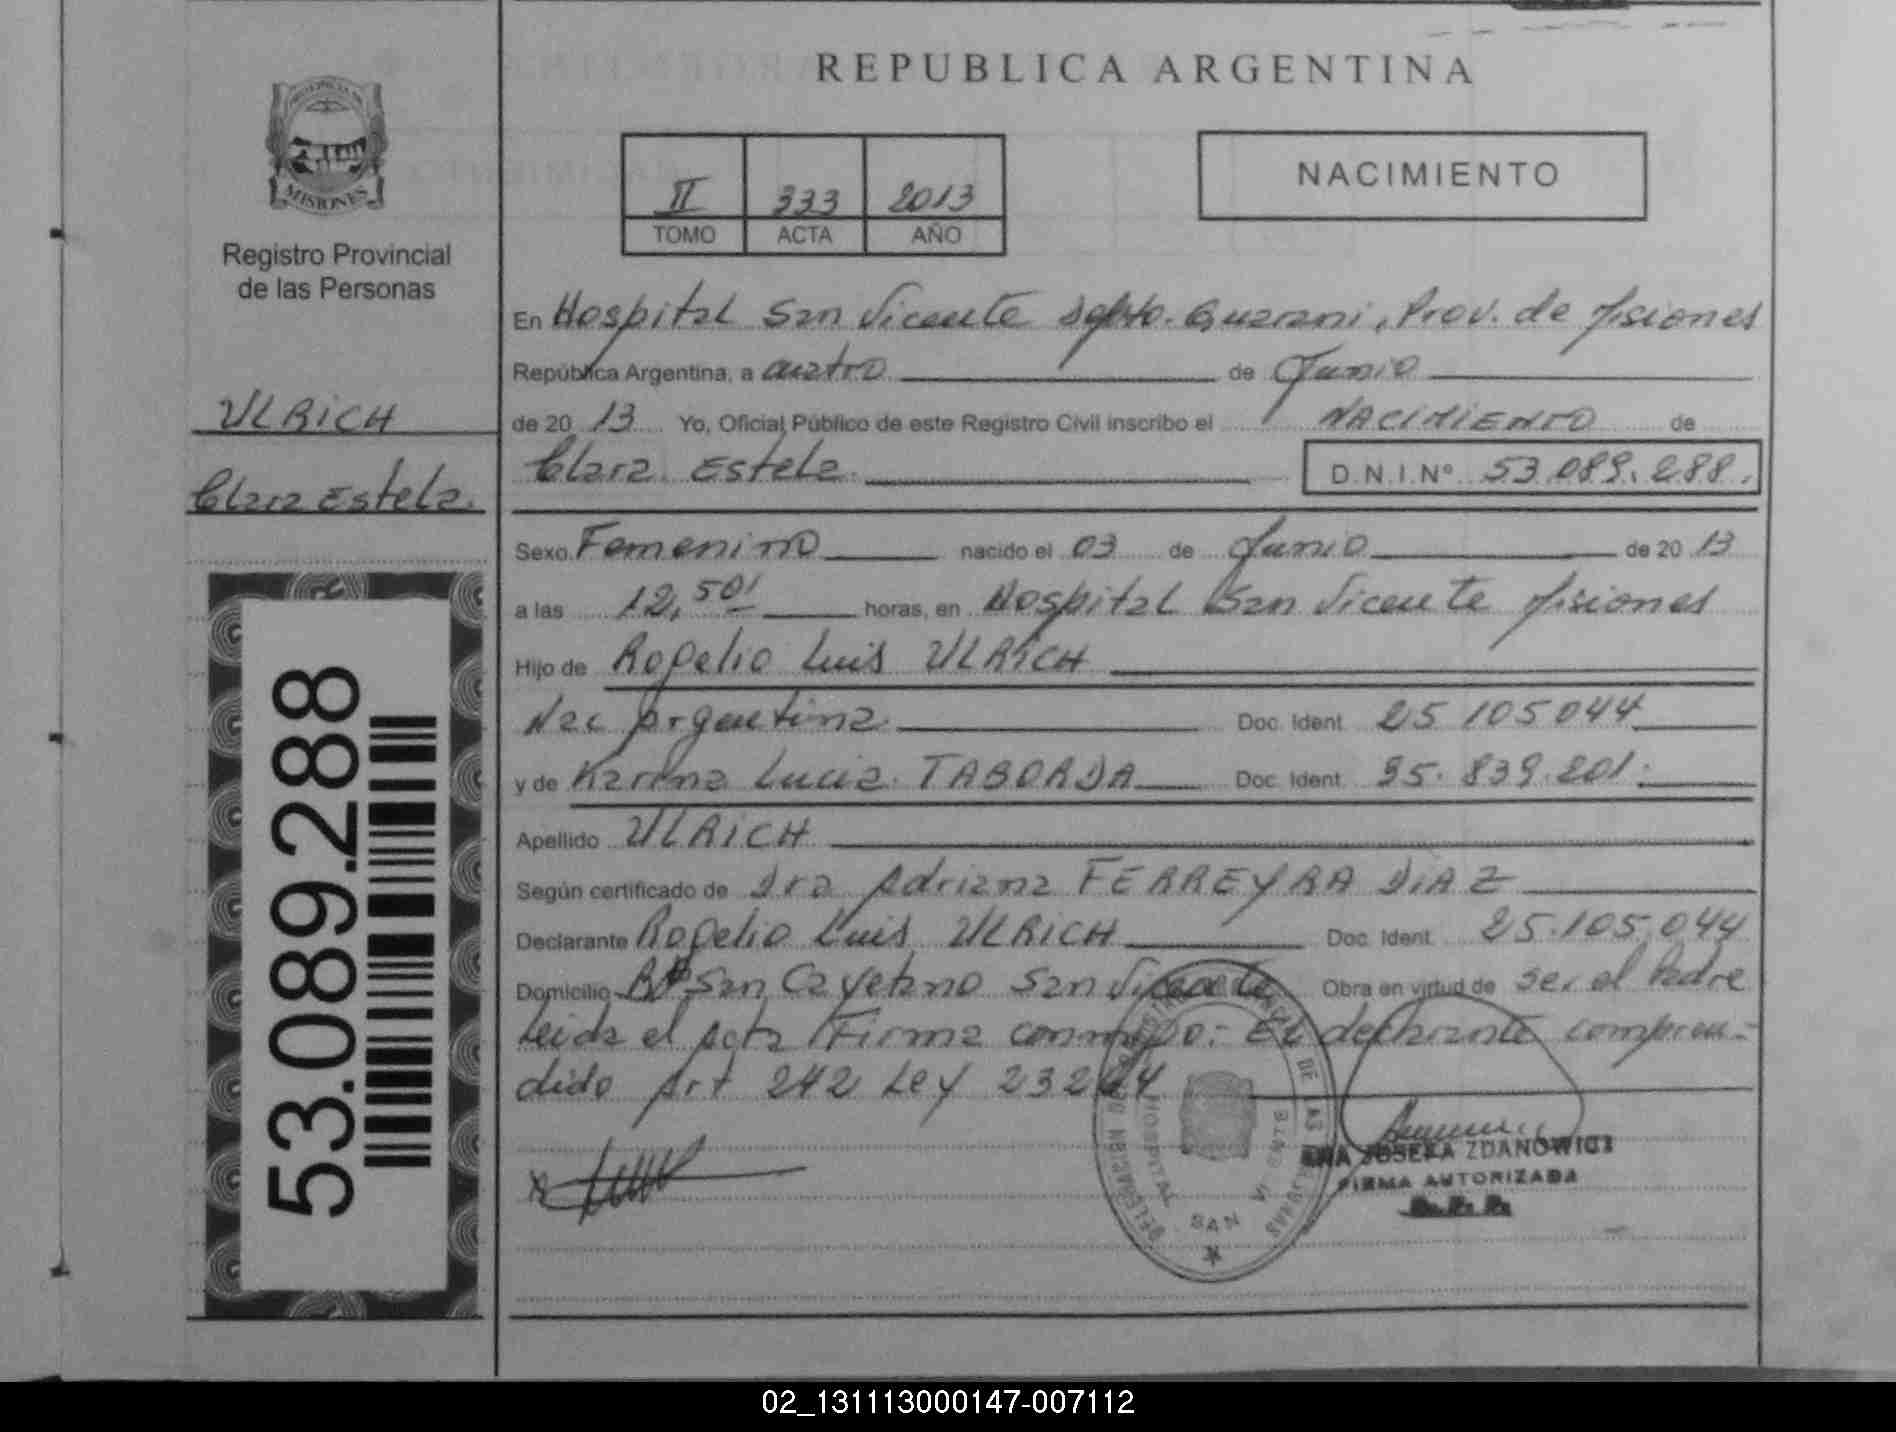 REPUBLICA ARGENTINA
PROVINCIA DE
MISIONES
Registro Provincial
de las Personas
ULRICH
Clara Estela.
53.089.288
II 333 2013
TOMO ACTA AÑO
NACIMIENTO
En Hospital San Vicente Depto. Guarani, Prov. de Misiones
República Argentina, a cuatro de Junio
de 20 13 Yo, Oficial Público de este Registro Civil inscribo el NACIMIENTO de
Clara Estela. D.N.I.Nº 53.089.288.
Sexo Femenino nacido el 03 de Junio de 20 13
a las 12,50' horas, en Hospital San Vicente Misiones
Hijo de Rogelio Luis ULRICH
Nac Argentina Doc. Ident. 25 105 044
y de Karina Lucia TABORDA Doc. Ident. 95.839.201.
Apellido ULRICH
Según certificado de Dra Adriana FERREYRA DIAZ
Declarante Rogelio Luis ULRICH Doc. Ident. 25.105.044
Domicilio Bº San Cayetano San Vicente Obra en virtud de ser el Padre
Leida el Acta Firma conmigo: El declarante compren-
dido Art 242 Ley 23264
HOSPITAL SAN VICENTE
JOSEFA ZDANOWICZ
FIRMA AUTORIZADA
02_131113000147-007112